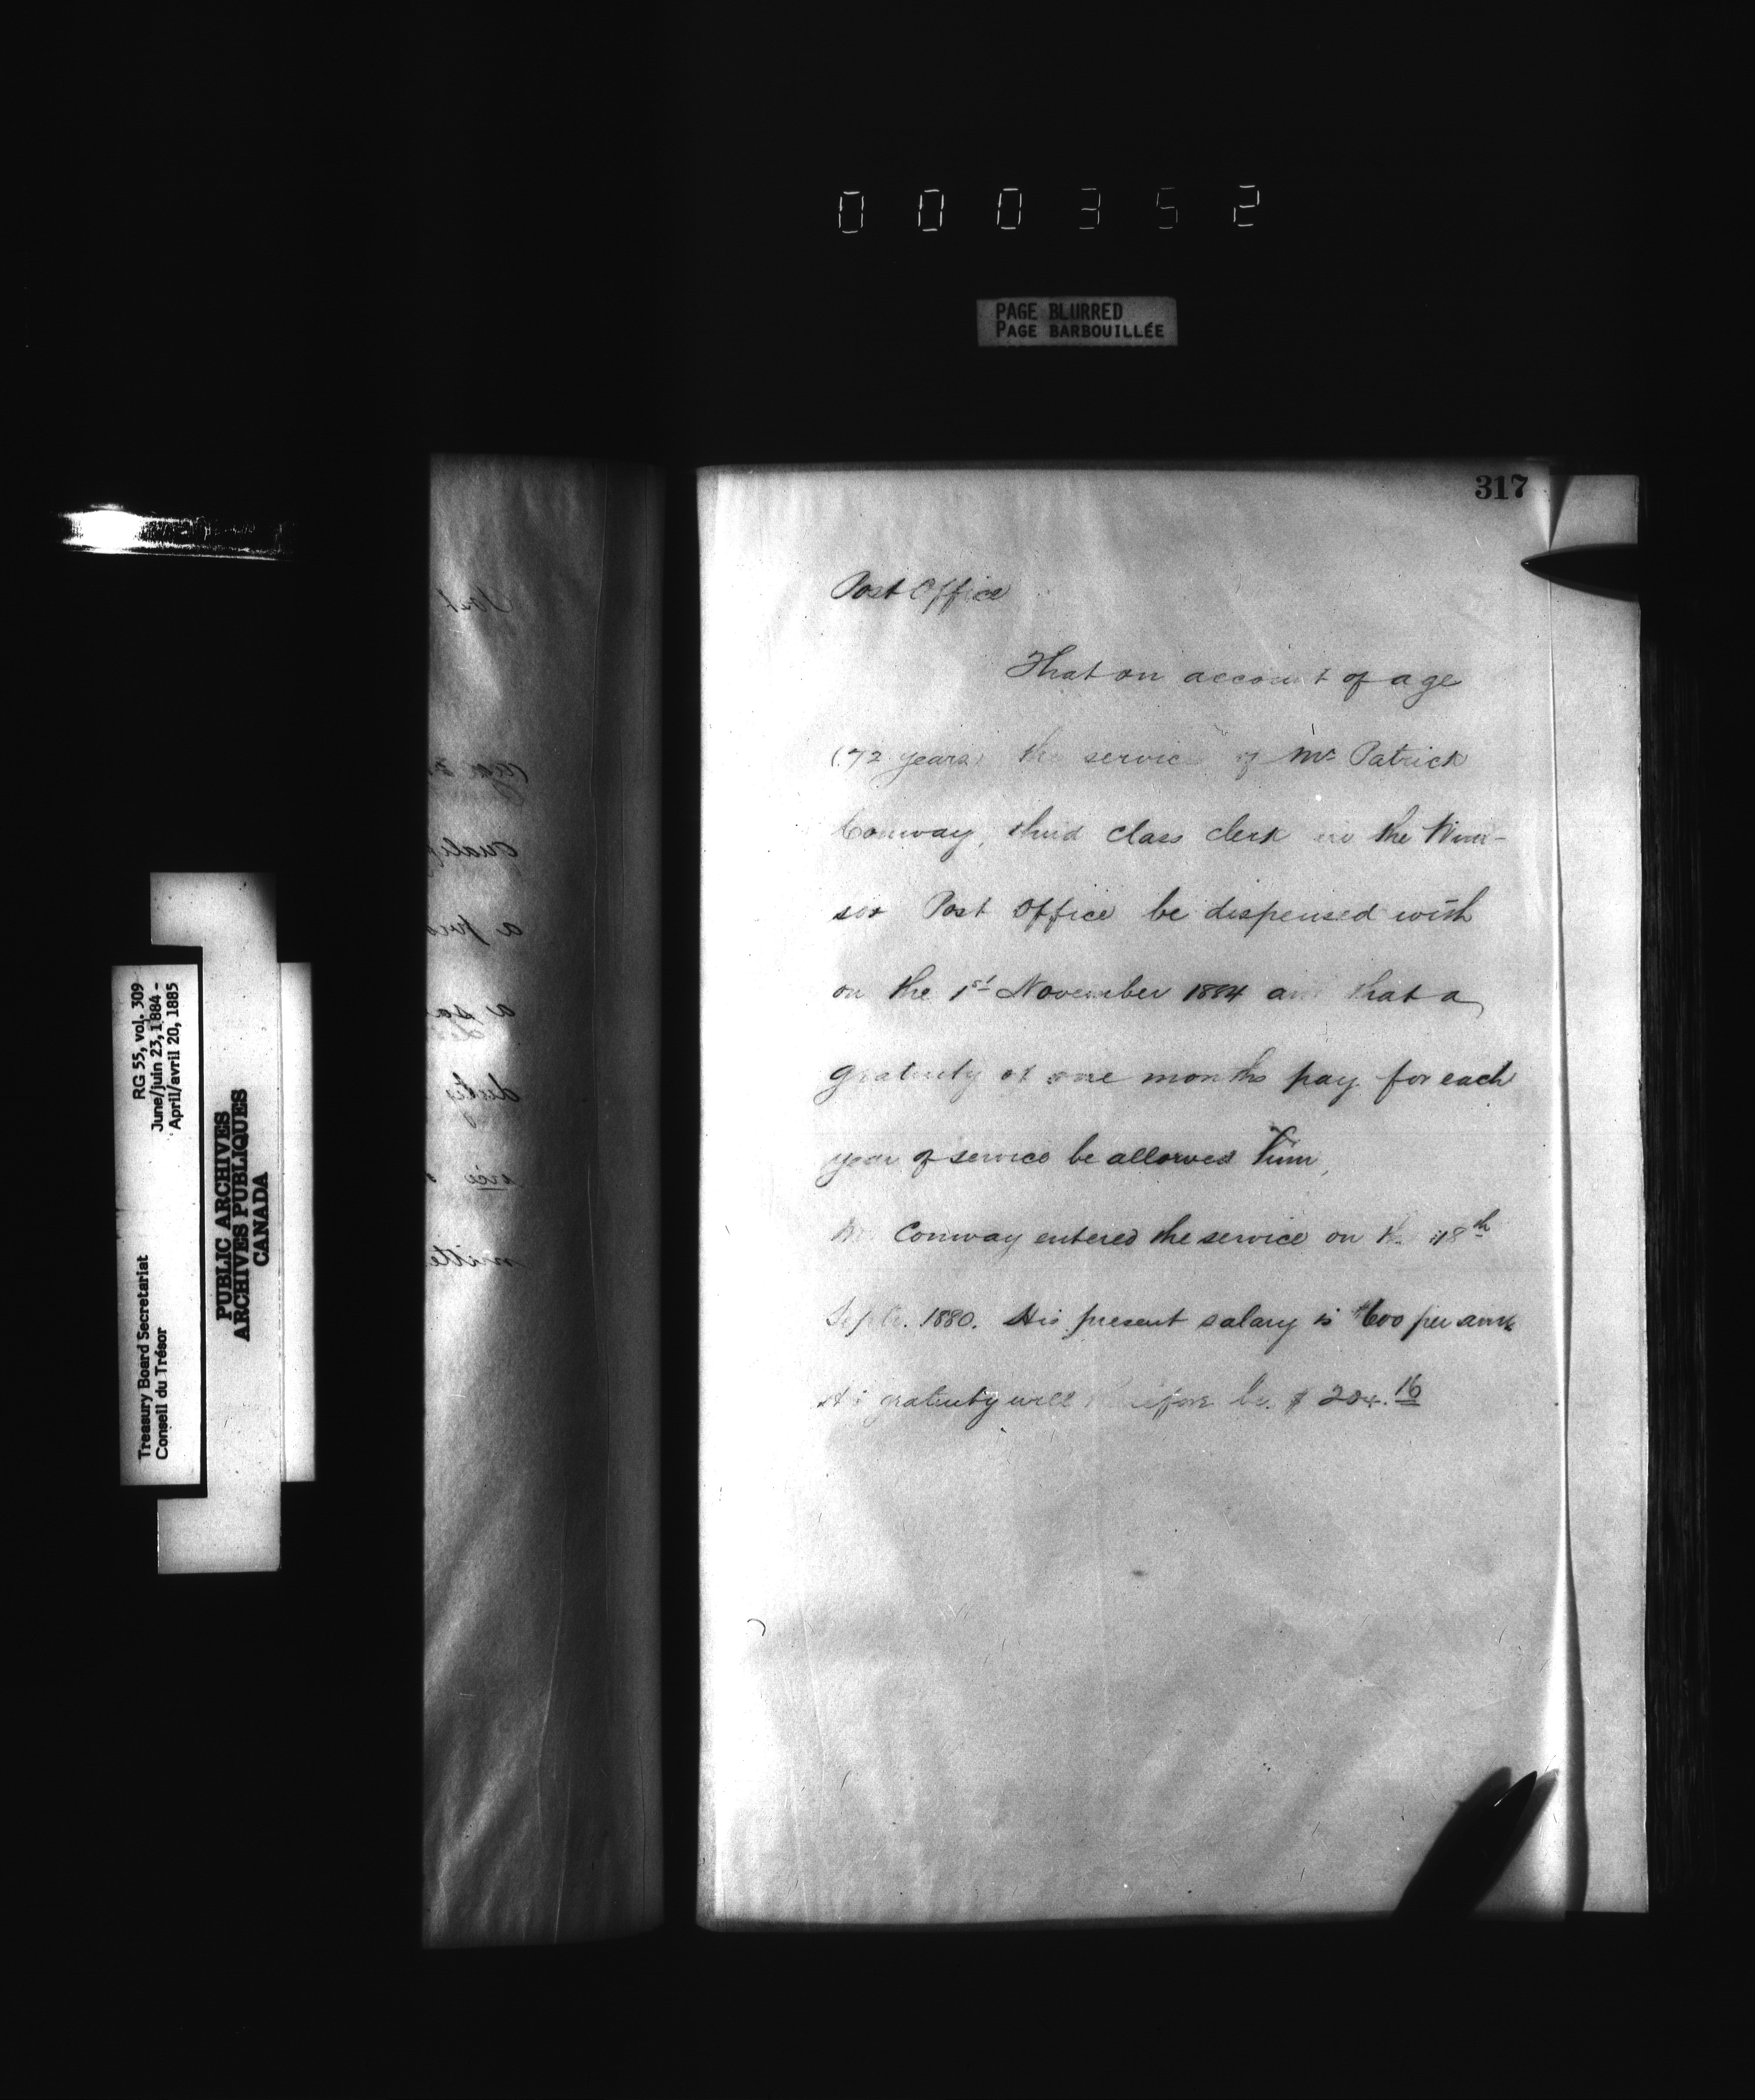 000352
PAGE BLURRED
PAGE BARBOUILLÉE
317
Post Office
That on account of age
(72 years) the service of Mr Patrick
Conway, third class clerk in the Win-
sor Post Office be dispensed with
on the 1st November 1884 and that a
gratuity of one months pay for each
year of service be allowed him,
Mr Conway entered the service on the 18th
Septr. 1880. His present salary is $600 per ann
His gratuity will therefore be $204.16
RG 55, vol. 309
June/juin 23, 1884 -
April/avril 20, 1885
Treasury Board Secretariat
Conseil du Trésor
PUBLIC ARCHIVES
ARCHIVES PUBLIQUES
CANADA